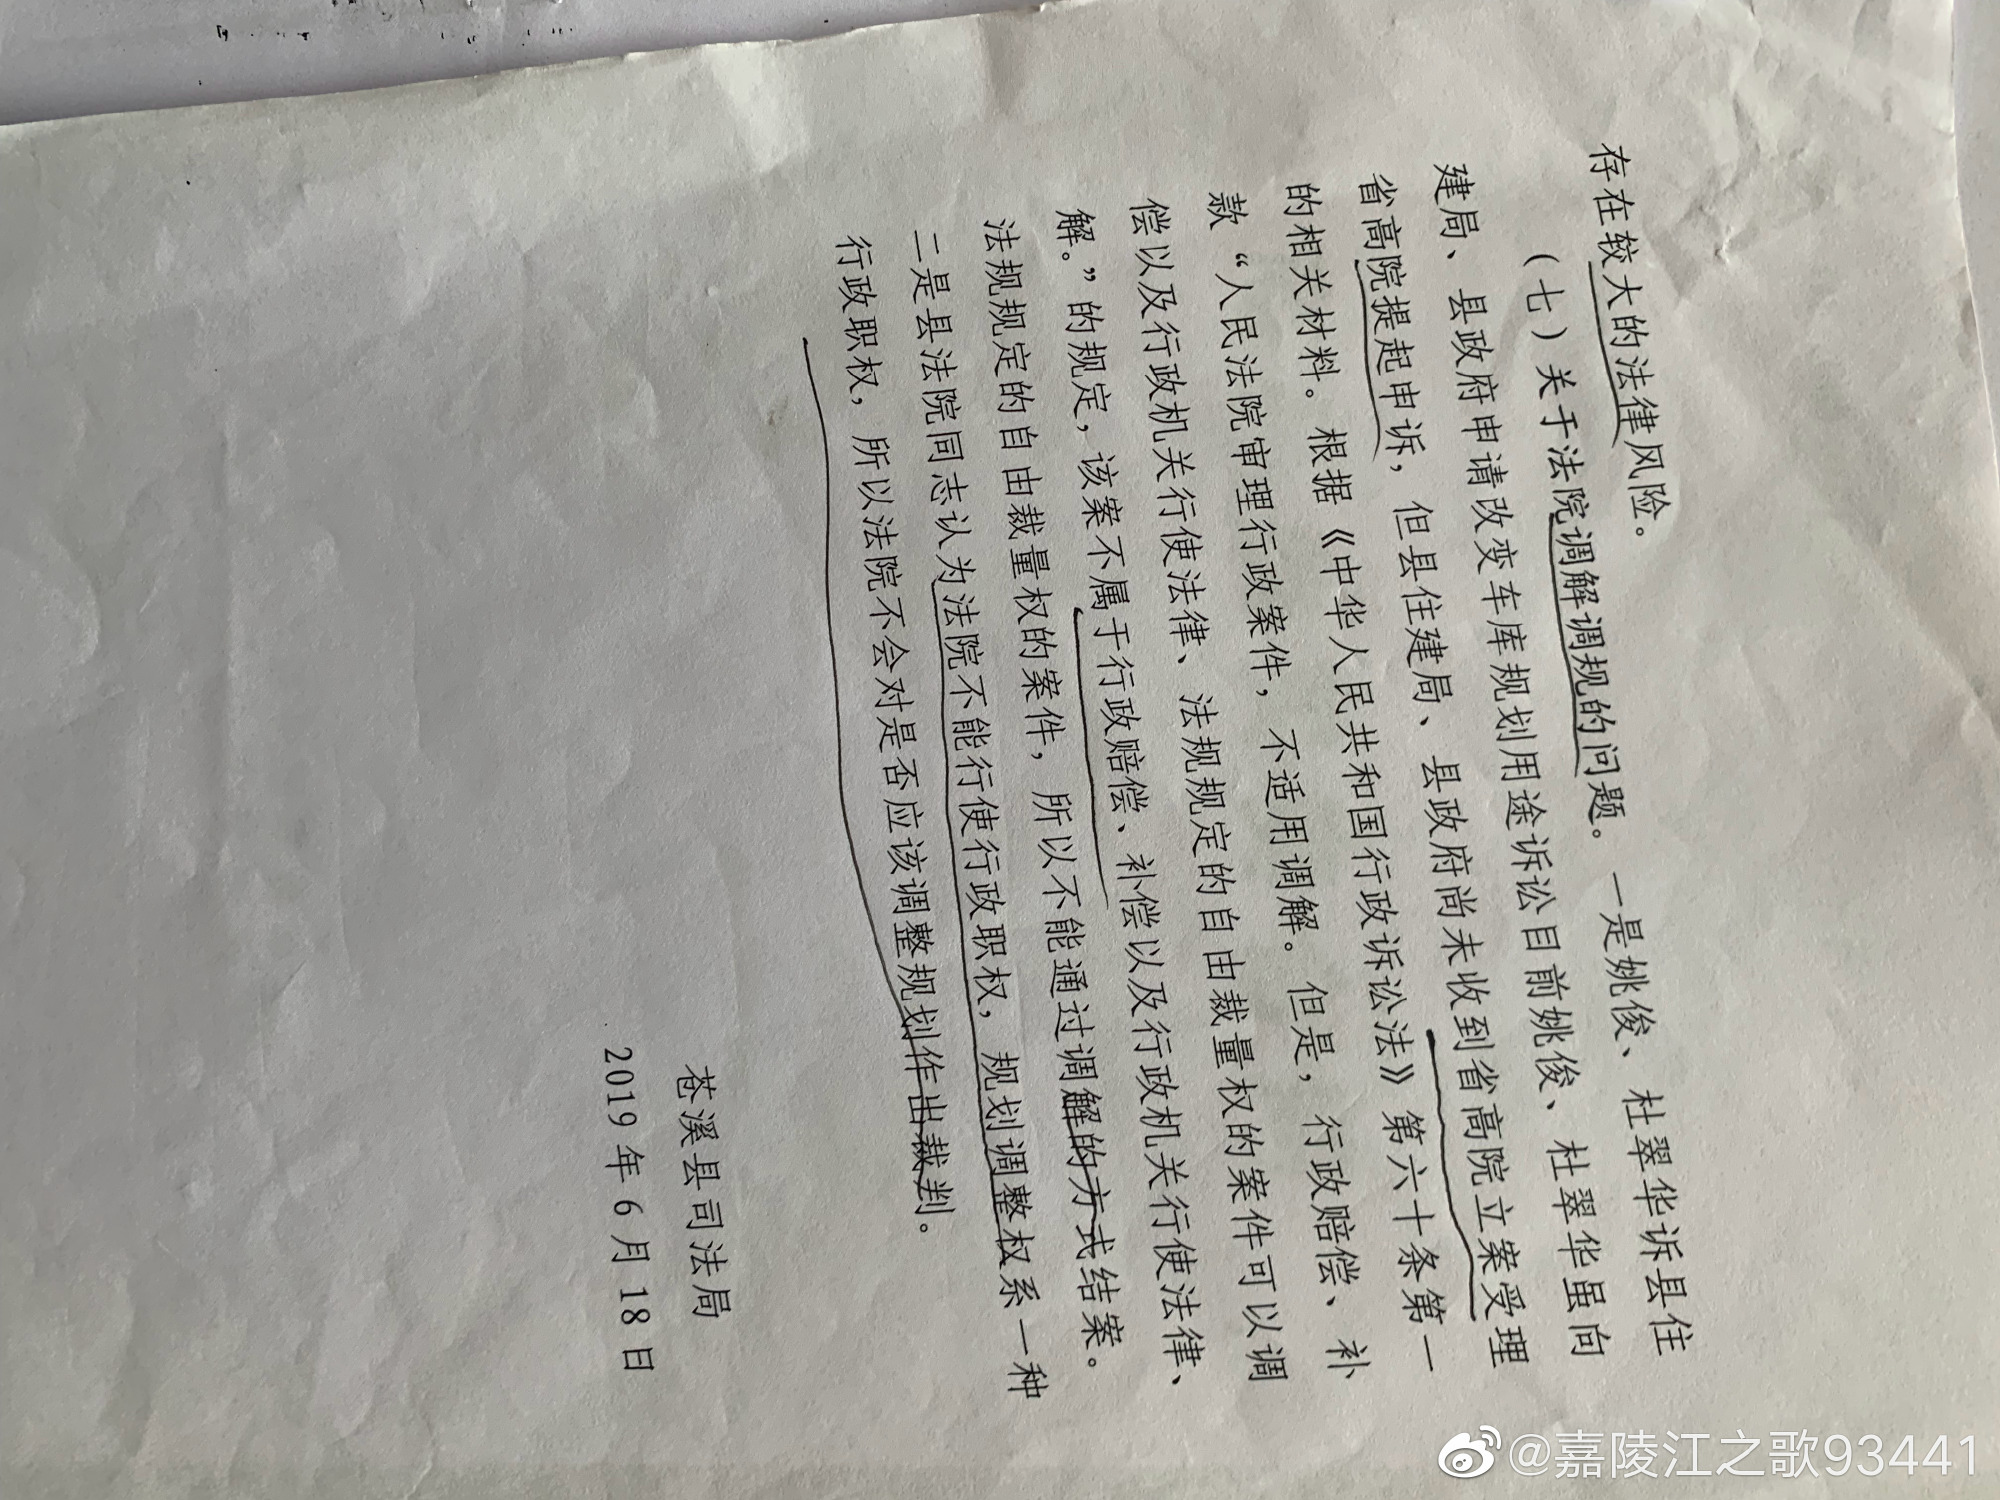 存在较大的法律风险。
（七）关于法院调解调规的问题。一是姚俊、杜翠华诉县住
建局、县政府申请改变车库规划用途诉讼目前姚俊、杜翠华虽向
省高院提起申诉，但县住建局、县政府尚未收到省高院立案受理
的相关材料。根据《中华人民共和国行政诉讼法》第六十条第一
款“人民法院审理行政案件，不适用调解。但是，行政赔偿、补
偿以及行政机关行使法律、法规规定的自由裁量权的案件可以调
解。”的规定，该案不属于行政赔偿、补偿以及行政机关行使法律、
法规规定的自由裁量权的案件，所以不能通过调解的方式结案。
二是县法院同志认为法院不能行使行政职权，规划调整权系一种
行政职权，所以法院不会对是否应该调整规划作出裁判。
苍溪县司法局
2019年6月18日
@嘉陵江之歌93441